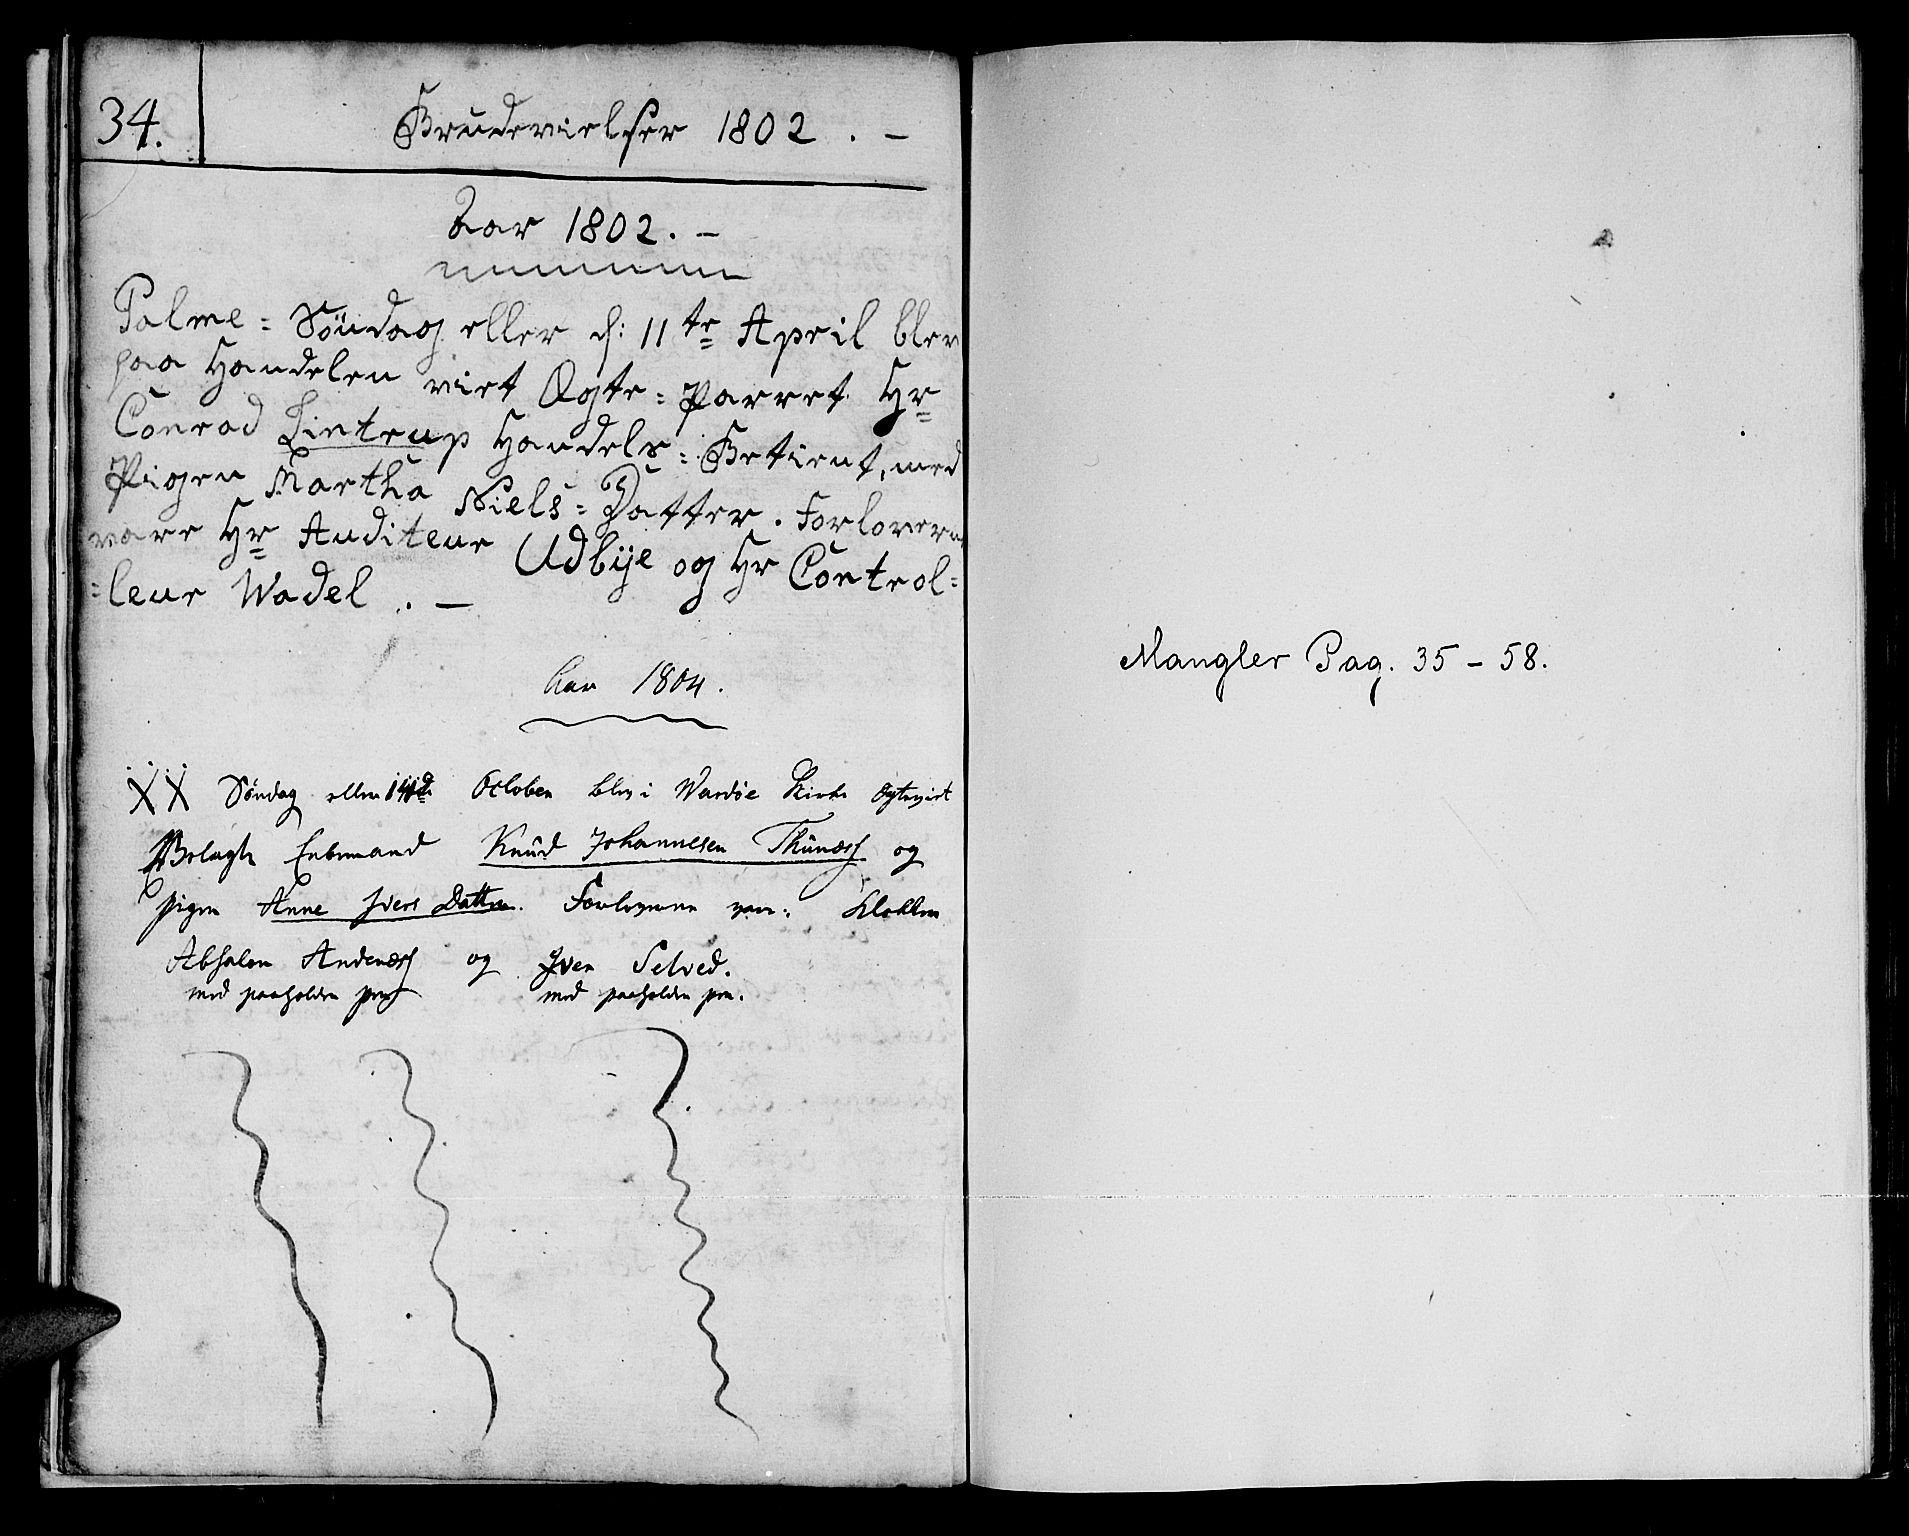 34.
Brudevielser 1802. –
Aar 1802. –
Palme = Söndag eller d: 11te April blev
paa Handelen viet Ægte = Parret Hr
Conrad Lintrup Handels = Betient, med
Pigen Martha Niels = Datter. Forlovere
vare Hr Auditeur Udbÿe og Hr Control=
=leur Wadel. –
Aar 1804.
XX Söndag eller October blev i Wardöe Kirke Ægteviet
Enkemand Knud Johannesen og
Pigen Anne Ivers Datter. Forloverne var: Klokker
Absalon Andersen og Iver Selved.
med paaholden pen med paaholden pen.
Mangler Pag. 35 – 58.